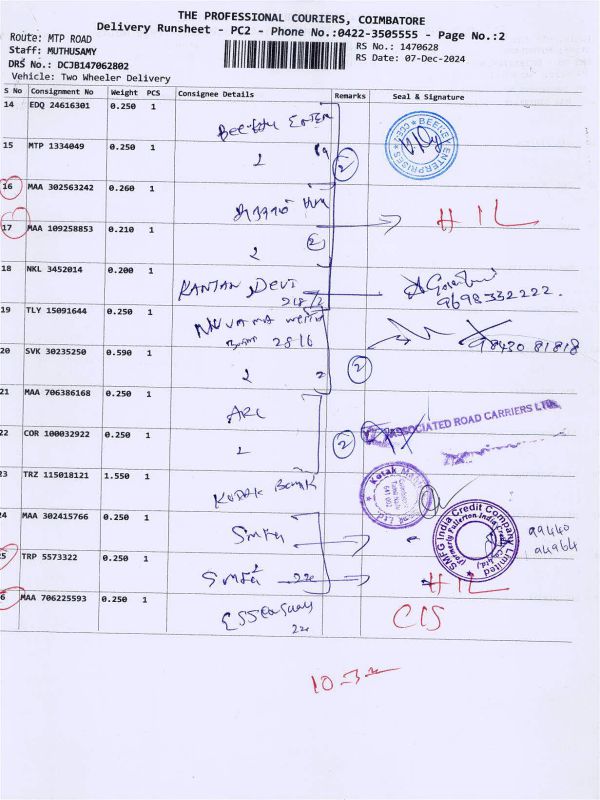 THE PROFESSIONAL COURIERS, COIMBATORE
Delivery Runsheet - PC2 - Phone No.:0422-3505555 - Page No.:2
Route: MTP ROAD
Staff: MUTHUSAMY
RS No.: 1470628
DRS No.: DCJB147062802
RS Date: 07-Dec-2024
Vehicle: Two Wheeler Delivery
S No Consignment No Weight PCS Consignee Details Remarks Seal & Signature
14 EDQ 24616301 0.250 1
BEELEY ENTERPRISES
15 MTP 1334049 0.250 1
2
16 MAA 302563242 0.260 1
17 MAA 109258853 0.210 1 HIL
2
18 NKL 3452014 0.200 1
KANTAN DEVI
9698332222.
19 TLY 15091644 0.250 1
2816
98430 81818
20 SVK 30235250 0.590 1
2
21 MAA 706386168 0.250 1
ARC
ASSOCIATED ROAD CARRIERS LTD.
22 COR 100032922 0.250 1
2
23 TRZ 115018121 1.550 1
Kotak Bank
Kotak Mah
24 MAA 302415766 0.250 1
SMFG
SMFG India Credit Company Limited
(Formerly Fullerton India Credit Co. Ltd.)
99440
94964
25 TRP 5573322 0.250 1
SMFG HIL
26 MAA 706225593 0.250 1
CIS